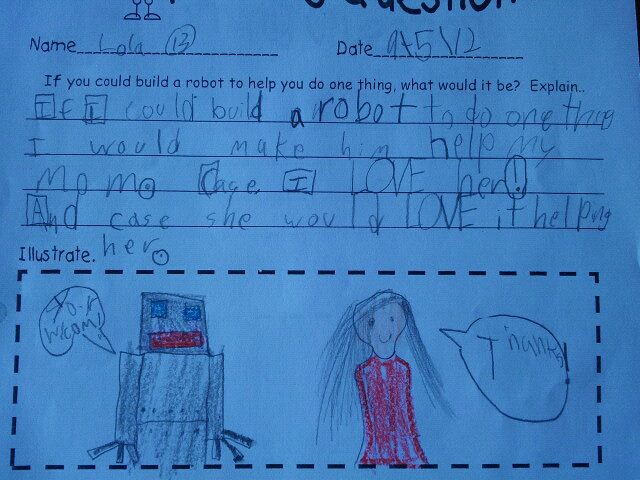 Question
Name Lola 13
Date 9/5/12
If you could build a robot to help you do one thing, what would it be? Explain..
If I could build a robot to do one thing
I would make him help my
Mom. Cage I LOVE her!
And case she would LOVE it helping
her.
Illustrate.
Your wlcom!
Thanks!